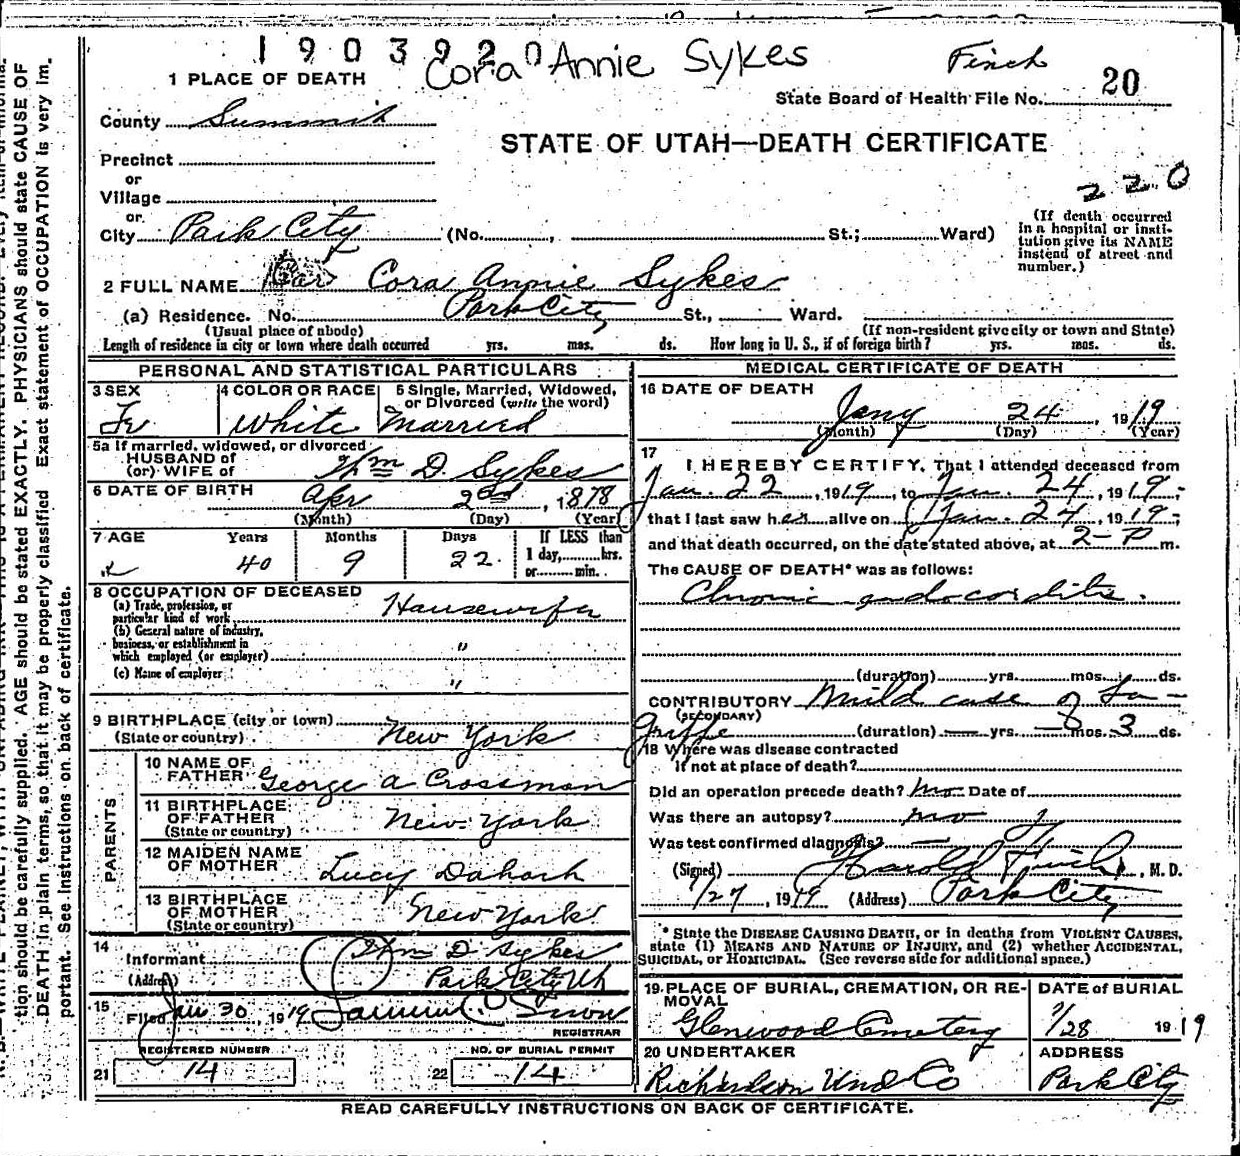 1903920
Cora Annie Sykes Finch
1 PLACE OF DEATH
State Board of Health File No. 20
County Summit
STATE OF UTAH—DEATH CERTIFICATE
Precinct
or
Village
220
or
City Park City (No. , St.; Ward)
(If death occurred in a hospital or insti-
tution give its NAME
instead of street and
number.)
2 FULL NAME Cora Annie Sykes
(a) Residence. No. Park City St., Ward.
(Usual place of abode) (If non-resident give city or town and State)
Length of residence in city or town where death occurred yrs. mos. ds. How long in U. S., if of foreign birth? yrs. mos. ds.
PERSONAL AND STATISTICAL PARTICULARS
3 SEX 4 COLOR OR RACE 5 Single, Married, Widowed,
or Divorced (write the word)
Fe White Married
5a If married, widowed, or divorced
HUSBAND of
(or) WIFE of Wm D. Sykes
6 DATE OF BIRTH Apr 2nd, 1878
(Month) (Day) (Year)
7 AGE Years Months Days If LESS than
1 day, hrs.
or min.
40 9 22
8 OCCUPATION OF DECEASED
(a) Trade, profession, or
particular kind of work Housewife
(b) General nature of industry,
business, or establishment in
which employed (or employer) "
(c) Name of employer "
9 BIRTHPLACE (city or town)
(State or country) New York
PARENTS
10 NAME OF
FATHER George A Crossman
11 BIRTHPLACE
OF FATHER
(State or country) New York
12 MAIDEN NAME
OF MOTHER Lucy
13 BIRTHPLACE
OF MOTHER
(State or country) New York
14
Informant Wm D Sykes
(Address) Park City Ut
15
Filed Jan 30, 1919 Snow
REGISTRAR
REGISTERED NUMBER NO. OF BURIAL PERMIT
21 14 22 14
MEDICAL CERTIFICATE OF DEATH
16 DATE OF DEATH
Jany 24, 1919
(Month) (Day) (Year)
17
I HEREBY CERTIFY, That I attended deceased from
Jan. 22, 1919, to Jan. 24, 1919,
that I last saw her alive on Jan. 24, 1919,
and that death occurred, on the date stated above, at 2-P m.
The CAUSE OF DEATH* was as follows:
Chronic endocarditis.
(duration) yrs. mos. ds.
CONTRIBUTORY Mild case of La-
(SECONDARY)
Grippe (duration) — yrs. — mos. 3 ds.
18 Where was disease contracted
If not at place of death?
Did an operation precede death? No Date of
Was there an autopsy? no
Was test confirmed diagnosis? —
(Signed) Harold Finch, M. D.
1/27, 1919 (Address) Park City
* State the DISEASE CAUSING DEATH, or in deaths from VIOLENT CAUSES,
state (1) MEANS AND NATURE OF INJURY, and (2) whether ACCIDENTAL,
SUICIDAL, or HOMICIDAL. (See reverse side for additional space.)
19 PLACE OF BURIAL, CREMATION, OR RE-
MOVAL
Glenwood Cemetery
DATE of BURIAL
1/28 1919
20 UNDERTAKER
Richardson Und Co
ADDRESS
Park City
READ CAREFULLY INSTRUCTIONS ON BACK OF CERTIFICATE.
tion should be carefully supplied. AGE should be stated EXACTLY. PHYSICIANS should state CAUSE OF
DEATH in plain terms, so that it may be properly classified. Exact statement of OCCUPATION is very im-
portant. See instructions on back of certificate.